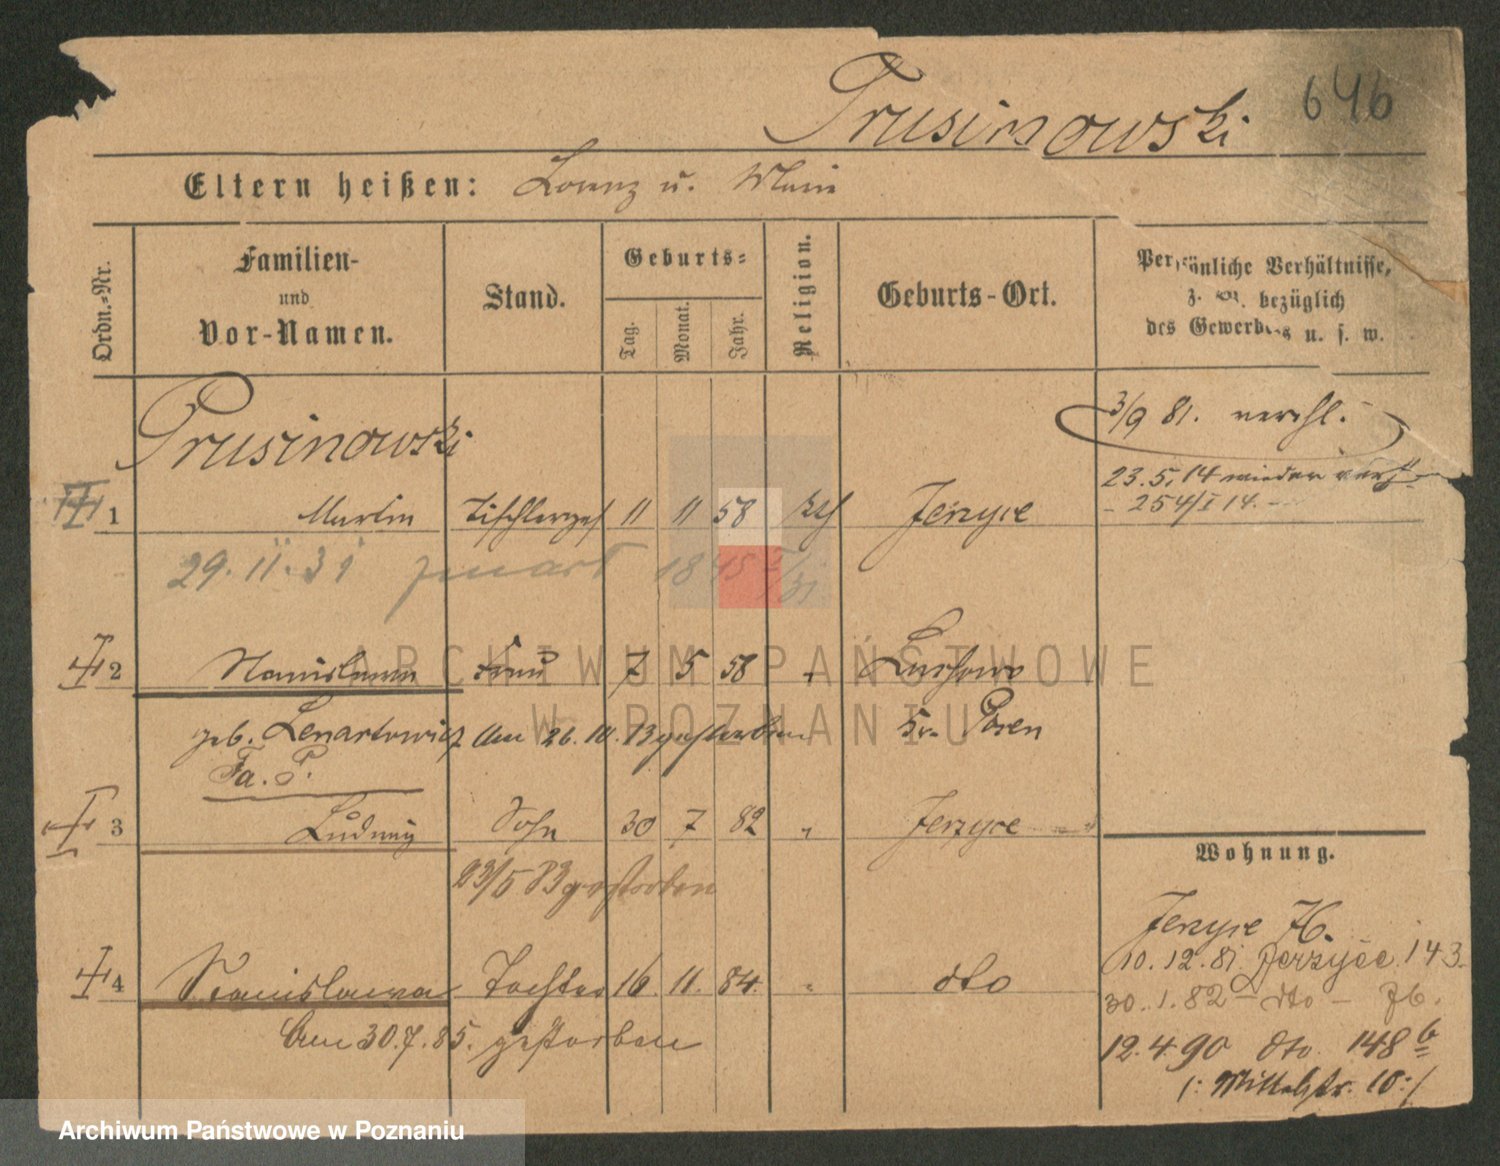 646
Prusinowski
Eltern heißen: Lorenz u. Marie
Ordn.-Nr.
Familien-
und
Vor-Namen.
Stand.
Geburts-
Tag.
Monat.
Jahr.
Religion.
Geburts-Ort.
Persönliche Verhältnisse,
z. B. bezüglich
des Gewerbes u. s. w.
Prusinowski
3/9 81. verehl.
23.5.14 wieder
- 254/I 14. -
1 Martin Tischlerges 11 11 58 kth Jerzyce
29.11.31 zmarł 1845
2 Stanislawa Frau 7 5 58 " Lussowo
geb. Lenartowicz Am 26.10.13 gestorben Kr. Posen
Fa. P.
3 Ludwig Sohn 30 7 82 " Jerzyce
23/5 83 gestorben
4 Stanislawa Tochter 16. 11. 84. " dto
Am 30.7.85. gestorben
Wohnung.
Jerzyce 76.
10.12.81 Jerzyce 143.
30.1.82 - dto - 76.
12.4.90 dto. 148 b
/: Mittelstr. 10 :/
ARCHIWUM PAŃSTWOWE
W POZNANIU
Archiwum Państwowe w Poznaniu